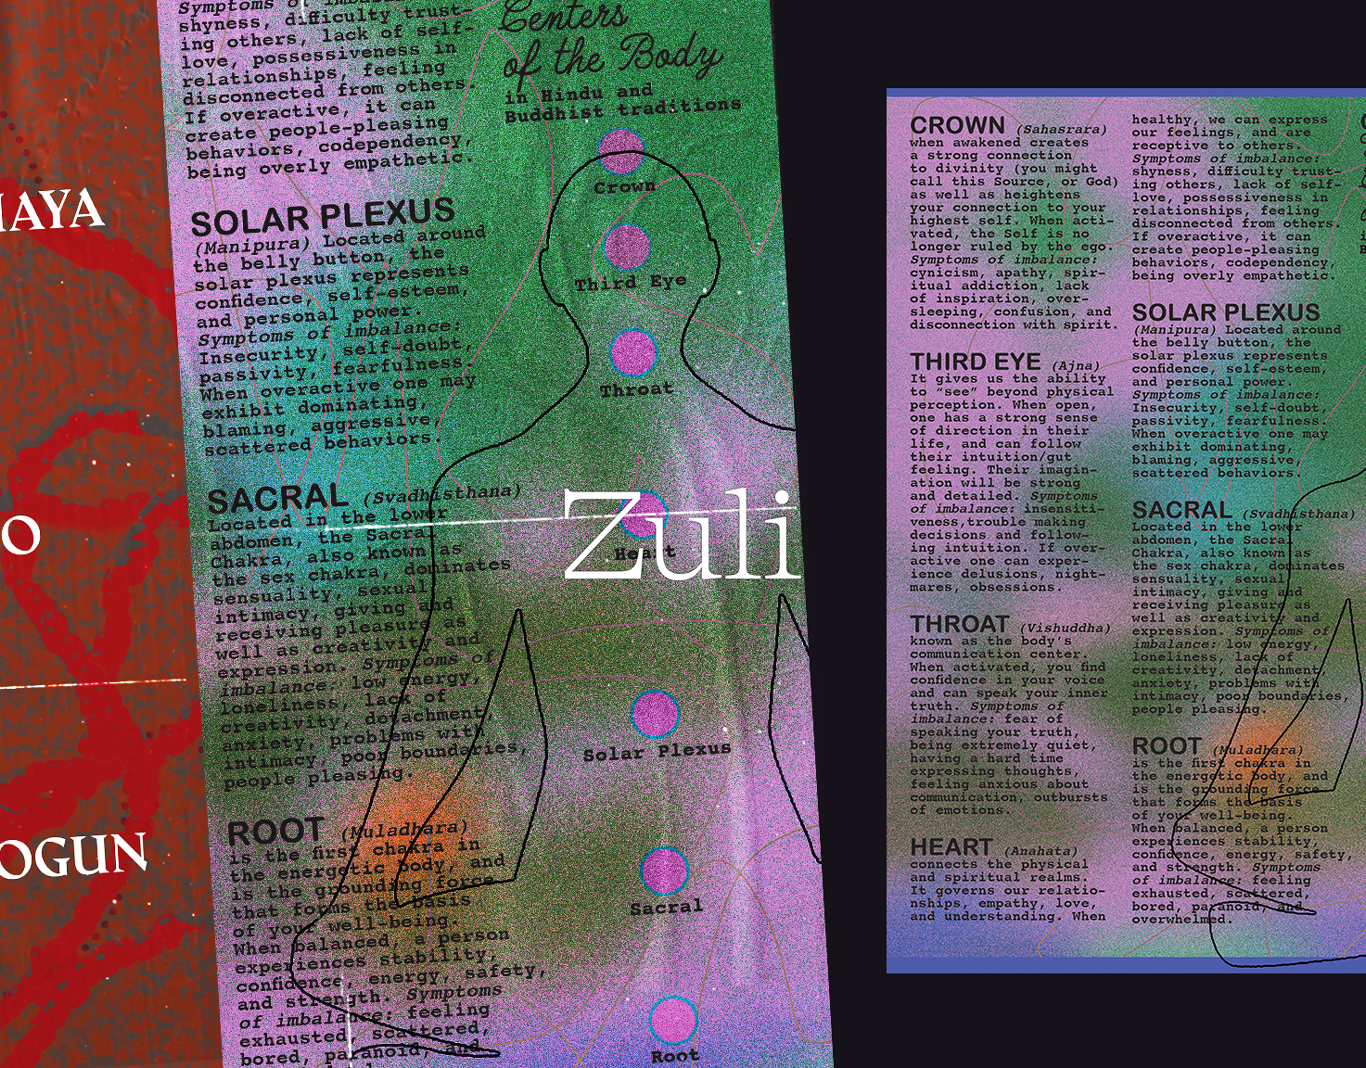 MAYA
O
OGUN
Symptoms of imbalance:
shyness, difficulty trust-
ing others, lack of self-
love, possessiveness in
relationships, feeling
disconnected from others.
If overactive, it can
create people-pleasing
behaviors, codependency,
being overly empathetic.
SOLAR PLEXUS
(Manipura) Located around
the belly button, the
solar plexus represents
confidence, self-esteem,
and personal power.
Symptoms of imbalance:
Insecurity, self-doubt,
passivity, fearfulness.
When overactive one may
exhibit dominating,
blaming, aggressive,
scattered behaviors.
SACRAL (Svadhisthana)
Located in the lower
abdomen, the Sacral
Chakra, also known as
the sex chakra, dominates
sensuality, sexual
intimacy, giving and
receiving pleasure as
well as creativity and
expression. Symptoms of
imbalance: low energy,
loneliness, lack of
creativity, detachment,
anxiety, problems with
intimacy, poor boundaries,
people pleasing.
ROOT (Muladhara)
is the first chakra in
the energetic body, and
is the grounding force
that forms the basis
of your well-being.
When balanced, a person
experiences stability,
confidence, energy, safety,
and strength. Symptoms
of imbalance: feeling
exhausted, scattered,
bored, paranoid, and
Centers
of the Body
in Hindu and
Buddhist traditions
Crown
Third Eye
Throat
Heart
Zuli
Solar Plexus
Sacral
Root
CROWN (Sahasrara)
when awakened creates
a strong connection
to divinity (you might
call this Source, or God)
as well as heightens
your connection to your
highest self. When acti-
vated, the Self is no
longer ruled by the ego.
Symptoms of imbalance:
cynicism, apathy, spir-
itual addiction, lack
of inspiration, over-
sleeping, confusion, and
disconnection with spirit.
THIRD EYE (Ajna)
It gives us the ability
to “see” beyond physical
perception. When open,
one has a strong sense
of direction in their
life, and can follow
their intuition/gut
feeling. Their imagin-
ation will be strong
and detailed. Symptoms
of imbalance: insensiti-
veness,trouble making
decisions and follow-
ing intuition. If over-
active one can exper-
ience delusions, night-
mares, obsessions.
THROAT (Vishuddha)
known as the body's
communication center.
When activated, you find
confidence in your voice
and can speak your inner
truth. Symptoms of
imbalance: fear of
speaking your truth,
being extremely quiet,
having a hard time
expressing thoughts,
feeling anxious about
communication, outbursts
of emotions.
HEART (Anahata)
connects the physical
and spiritual realms.
It governs our relatio-
nships, empathy, love,
and understanding. When
healthy, we can express
our feelings, and are
receptive to others.
Symptoms of imbalance:
shyness, difficulty trust-
ing others, lack of self-
love, possessiveness in
relationships, feeling
disconnected from others.
If overactive, it can
create people-pleasing
behaviors, codependency,
being overly empathetic.
SOLAR PLEXUS
(Manipura) Located around
the belly button, the
solar plexus represents
confidence, self-esteem,
and personal power.
Symptoms of imbalance:
Insecurity, self-doubt,
passivity, fearfulness.
When overactive one may
exhibit dominating,
blaming, aggressive,
scattered behaviors.
SACRAL (Svadhisthana)
Located in the lower
abdomen, the Sacral
Chakra, also known as
the sex chakra, dominates
sensuality, sexual
intimacy, giving and
receiving pleasure as
well as creativity and
expression. Symptoms of
imbalance: low energy,
loneliness, lack of
creativity, detachment,
anxiety, problems with
intimacy, poor boundaries,
people pleasing.
ROOT (Muladhara)
is the first chakra in
the energetic body, and
is the grounding force
that forms the basis
of your well-being.
When balanced, a person
experiences stability,
confidence, energy, safety,
and strength. Symptoms
of imbalance: feeling
exhausted, scattered,
bored, paranoid, and
overwhelmed.